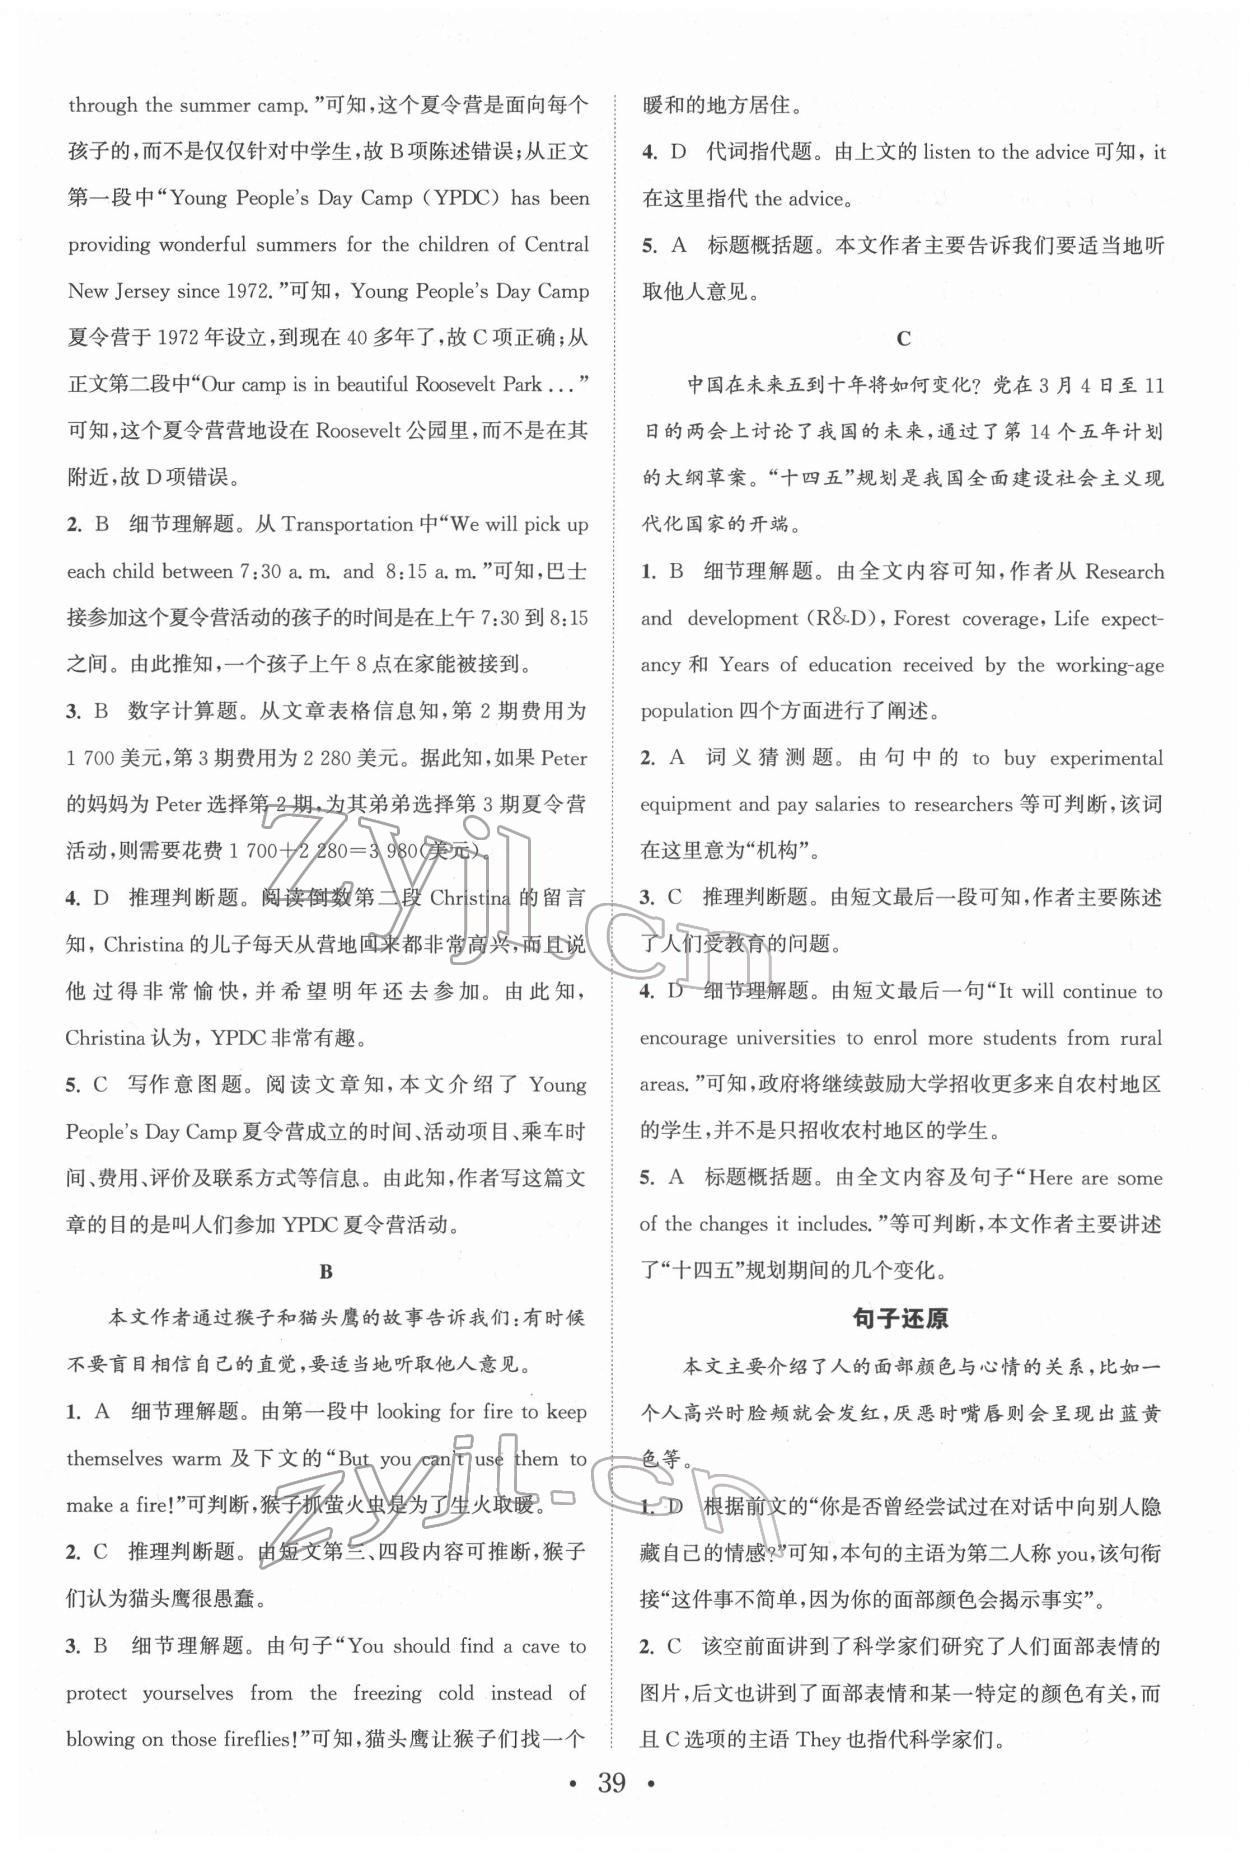 through the summer camp. ”可知,这个夏令营是面向每个
孩子的,而不是仅仅针对中学生,故 B 项陈述错误;从正文
第一段中“Young People's Day Camp (YPDC) has been
providing wonderful summers for the children of Central
New Jersey since 1972. ”可知, Young People's Day Camp
夏令营于 1972 年设立,到现在 40 多年了,故 C 项正确;从
正文第二段中“Our camp is in beautiful Roosevelt Park ... ”
可知,这个夏令营营地设在 Roosevelt 公园里,而不是在其
附近,故 D 项错误。
2. B 细节理解题。从 Transportation 中“We will pick up
each child between 7:30 a. m. and 8:15 a. m. ”可知,巴士
接参加这个夏令营活动的孩子的时间是在上午 7:30 到 8:15
之间。由此推知,一个孩子上午 8 点在家能被接到。
3. B 数字计算题。从文章表格信息知,第 2 期费用为
1 700 美元,第 3 期费用为 2 280 美元。据此知,如果 Peter
的妈妈为 Peter 选择第 2 期,为其弟弟选择第 3 期夏令营
活动,则需要花费 1 700+2 280=3 980(美元)。
4. D 推理判断题。阅读倒数第二段 Christina 的留言
知, Christina 的儿子每天从营地回来都非常高兴,而且说
他过得非常愉快,并希望明年还去参加。由此知,
Christina 认为, YPDC 非常有趣。
5. C 写作意图题。阅读文章知,本文介绍了 Young
People's Day Camp 夏令营成立的时间、活动项目、乘车时
间、费用、评价及联系方式等信息。由此知,作者写这篇文
章的目的是叫人们参加 YPDC 夏令营活动。
B
本文作者通过猴子和猫头鹰的故事告诉我们:有时候
不要盲目相信自己的直觉,要适当地听取他人意见。
1. A 细节理解题。由第一段中 looking for fire to keep
themselves warm 及下文的“But you can't use them to
make a fire!”可判断,猴子抓萤火虫是为了生火取暖。
2. C 推理判断题。由短文第三、四段内容可推断,猴子
们认为猫头鹰很愚蠢。
3. B 细节理解题。由句子“You should find a cave to
protect yourselves from the freezing cold instead of
blowing on those fireflies!”可知,猫头鹰让猴子们找一个
暖和的地方居住。
4. D 代词指代题。由上文的 listen to the advice 可知, it
在这里指代 the advice。
5. A 标题概括题。本文作者主要告诉我们要适当地听
取他人意见。
C
中国在未来五到十年将如何变化? 党在 3 月 4 日至 11
日的两会上讨论了我国的未来,通过了第 14 个五年计划
的大纲草案。“十四五”规划是我国全面建设社会主义现
代化国家的开端。
1. B 细节理解题。由全文内容可知,作者从 Research
and development (R&D), Forest coverage, Life expect-
ancy 和 Years of education received by the working-age
population 四个方面进行了阐述。
2. A 词义猜测题。由句中的 to buy experimental
equipment and pay salaries to researchers 等可判断,该词
在这里意为“机构”。
3. C 推理判断题。由短文最后一段可知,作者主要陈述
了人们受教育的问题。
4. D 细节理解题。由短文最后一句“It will continue to
encourage universities to enrol more students from rural
areas. ”可知,政府将继续鼓励大学招收更多来自农村地区
的学生,并不是只招收农村地区的学生。
5. A 标题概括题。由全文内容及句子“Here are some
of the changes it includes. ”等可判断,本文作者主要讲述
了“十四五”规划期间的几个变化。
句子还原
本文主要介绍了人的面部颜色与心情的关系,比如一
个人高兴时脸颊就会发红,厌恶时嘴唇则会呈现出蓝黄
色等。
1. D 根据前文的“你是否曾经尝试过在对话中向别人隐
藏自己的情感?”可知,本句的主语为第二人称 you,该句衔
接“这件事不简单,因为你的面部颜色会揭示事实”。
2. C 该空前面讲到了科学家们研究了人们面部表情的
图片,后文也讲到了面部表情和某一特定的颜色有关,而
且 C 选项的主语 They 也指代科学家们。
• 39 •
zyjl.cn
zyjl.cn